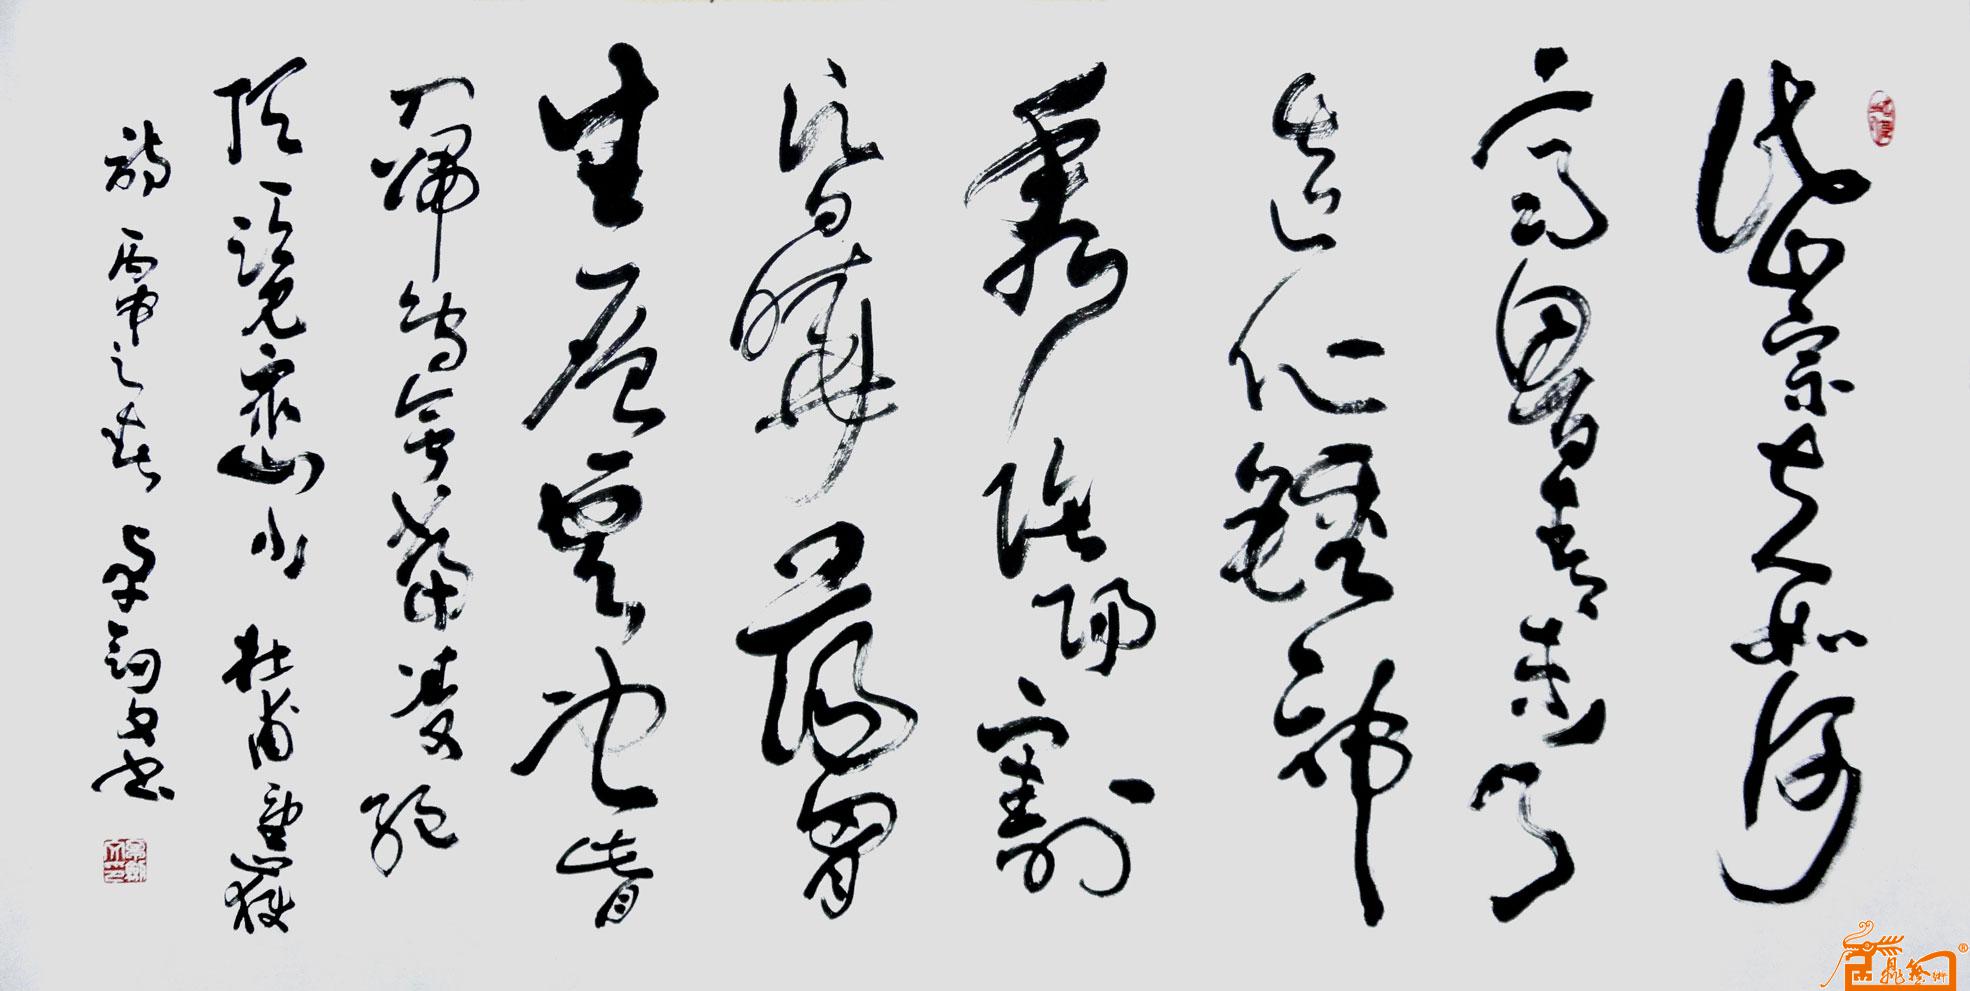 岱宗夫如何
齊魯青未了
造化鍾神
秀陰陽割
昏曉蕩胸
生層雲決眥
入歸鳥會當凌絕
頂一覽眾山小 杜甫望嶽
詩 丙申之春 文書